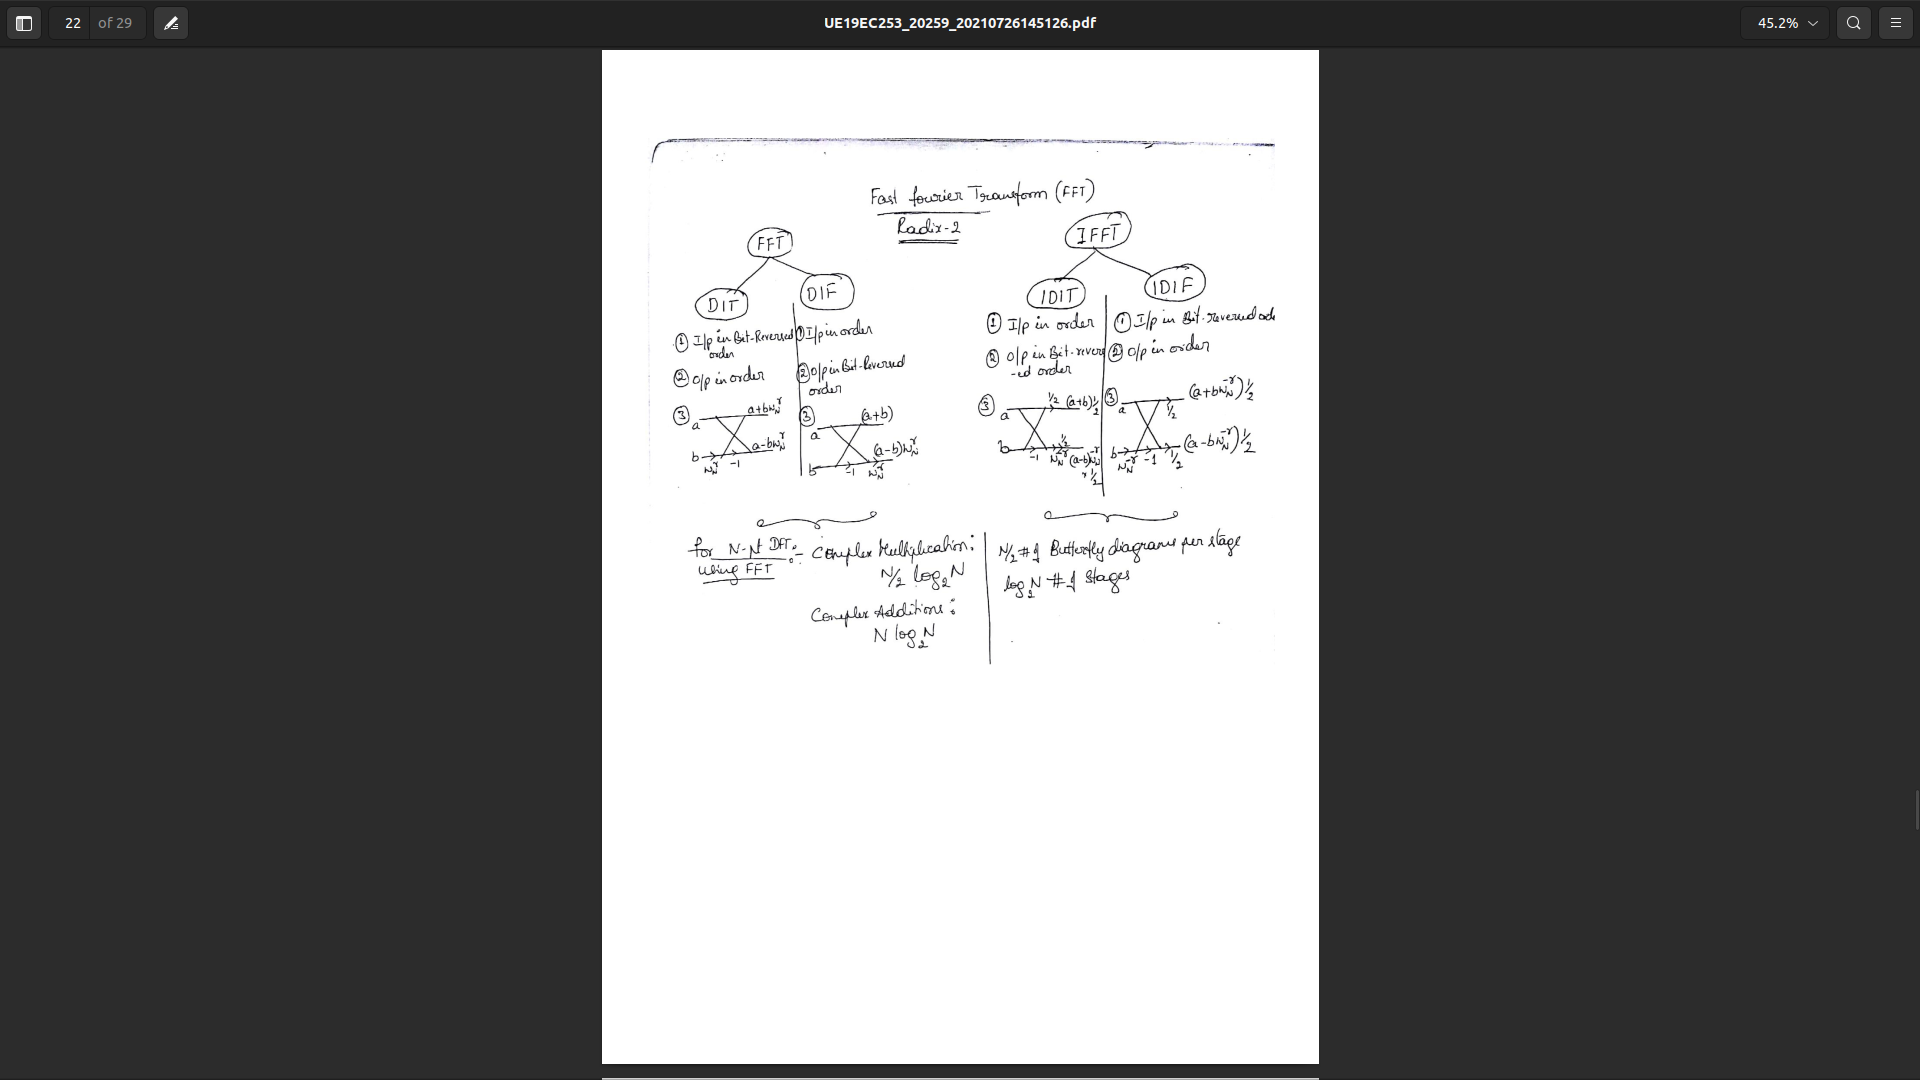 22 of 29
UE19EC253_20259_20210726145126.pdf
45.2%
Fast fourier Transform (FFT)
Radix-2
FFT
DIT
DIF
① I/p in Bit-Reversed order
② O/p in order
③
a
b
a+bW_N^r
a-bW_N^r
W_N^r
-1
① I/p in order
② O/p in Bit-Reversed order
③
a
b
(a+b)
(a-b)W_N^r
-1
W_N^r
IFFT
IDIT
IDIF
① I/p in order
② O/p in Bit-revers-ed order
③
a
b
1/2
(a+b)1/2
-1
W_N^-r
1/2
(a-b)W_N^-r
×1/2
① I/p in Bit-reversed
② O/p in order
③
a
b
(a+bW_N^-r)1/2
1/2
(a-bW_N^-r)1/2
W_N^-r
-1
1/2
For N-pt DFT:-
using FFT
Complex Multiplication:
N/2 log₂N
Complex Additions:
N log₂N
N/2 # of Butterfly diagrams per stage
log₂N # of Stages